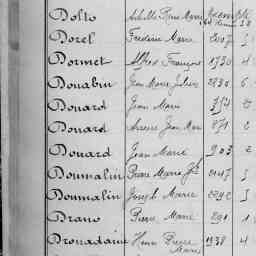 Dolto Achille Pierre Marie Exempté
Dorel Frédéric Marie 2007
Dormet Alfred François 1730 4
Douabin Jean Marie Julien 2830 6
Douard Jean Marie 2
Douard Jean Marie 871 2
Douard Jean Marie 903 2
Doumalin Pierre Marie Jh 2147
Doumalin Joseph Marie 2292
Drano Pierre Marie 291 1
Drouadaine Henri Pierre 1938 4
Marie